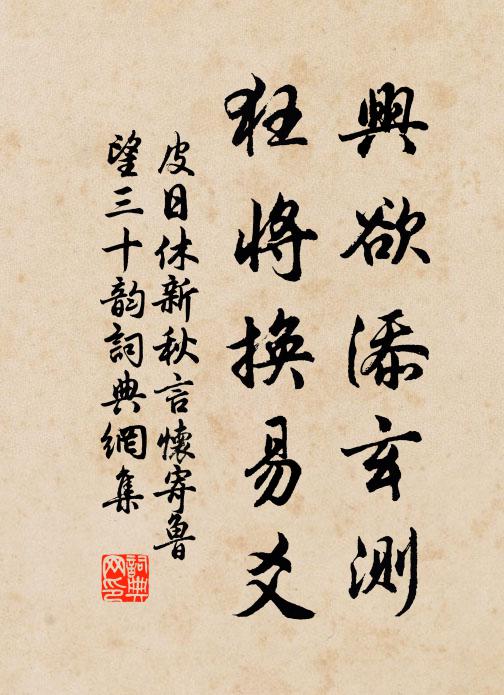 興欲添玄測
狂將換易爻
皮日休新秋言懷寄魯
望三十韵詞典網集
詞典
网印